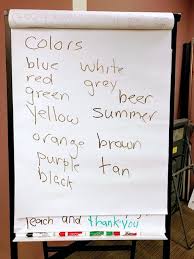 Colors
blue white
red grey
green beer
Yellow Summer
orange brown
purple tan
black
Teach and thankyou